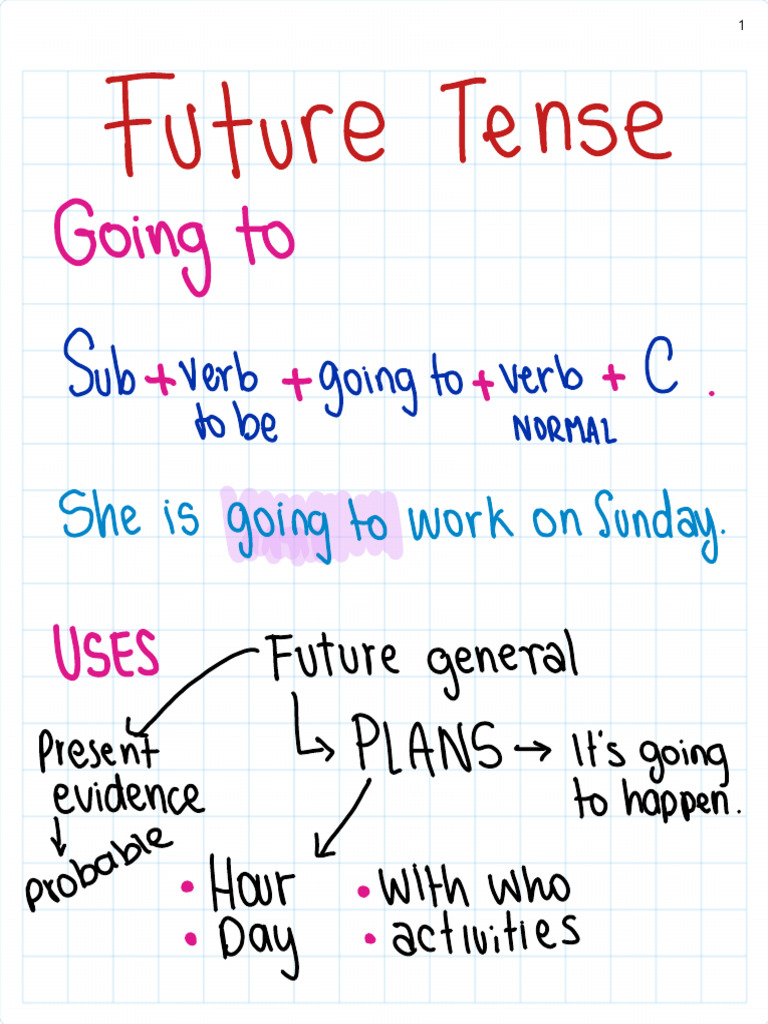 1
Future Tense
Going to
Sub + verb + going to + verb + C .
to be NORMAL
She is going to work on Sunday.
USES Future general
Present evidence
PLANS → It's going to happen.
probable
• Hour • With who
• Day • activities